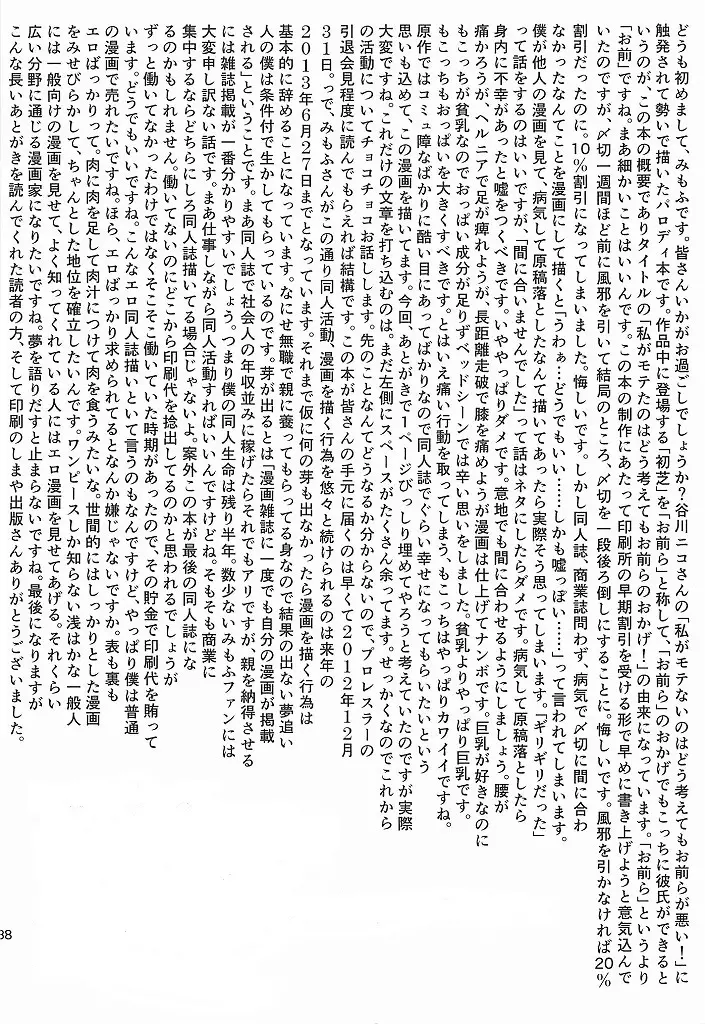 どうも初めまして、みもふです。皆さんいかがお過ごしでしょうか?谷川ニコさんの「私がモテないのはどう考えてもお前らが悪い!」に
触発されて勢いで描いたパロディ本です。作品中に登場する「初芝」を「お前ら」と称して、「お前ら」のおかげでもこっちに彼氏ができると
いうのが、この本の概要でありタイトルの「私がモテたのはどう考えてもお前らのおかげ!」の由来になっています。「お前ら」というより
「お前」ですね。まあ細かいことはいいんです。この本の制作にあたって印刷所の早期割引を受ける形で早めに書き上げようと意気込んで
いたのですが、〆切一週間ほど前に風邪を引いて結局のところ、〆切を一段後ろ倒しにすることに。悔しいです。風邪を引かなければ20%
割引だったのに。10%割引になってしまいました。悔しいです。しかし同人誌、商業誌問わず、病気で〆切に間に合わ
なかったなんてことを漫画にして描くと「うわぁ…どうでもいい……しかも嘘っぽい……」って言われてしまいます。
僕が他人の漫画を見て、病気して原稿落としたなんて描いてあったら実際そう思ってしまいます。「ギリギリだった」
って話をするのはいいですが、「間に合いませんでした」って話はネタにしたらダメです。病気して原稿落としたら
身内に不幸があったと嘘をつくべきです。いややっぱりダメです。意地でも間に合わせるようにしましょう。腰が
痛かろうが、ヘルニアで足が痺れようが、長距離走破で膝を痛めようが漫画は仕上げてナンボです。巨乳が好きなのに
もこっちが貧乳なのでおっぱい成分が足りずベッドシーンでは辛い思いをしました。貧乳よりやっぱり巨乳です。
もこっちもおっぱいを大きくすべきです。とはいえ痛い行動を取ってしまう、もこっちはやっぱりカワイイですね。
原作ではコミュ障なばかりに酷い目にあってばかりなので同人誌でぐらい幸せになってもらいたいという
思いも込めて、この漫画を描いてます。今回、あとがきで1ページびっしり埋めてやろうと考えていたのですが実際
大変ですね。これだけの文章を打ち込むのは。まだ左側にスペースがたくさん余ってます。せっかくなのでこれから
の活動についてチョコチョコお話しします。先のことなんてどうなるか分からないので、プロレスラーの
引退会見程度に読んでもらえれば結構です。この本が皆さんの手元に届くのは早くて2012年12月
31日。っで、みもふさんがこの通り同人活動、漫画を描く行為を悠々と続けられるのは来年の
2013年6月27日までとなっています。それまで仮に何の芽も出なかったら漫画を描く行為は
基本的に辞めることになっています。なにせ無職で親に養ってもらってる身なので結果の出ない夢追い
人の僕は条件付で生かしてもらっているのです。芽が出るとは「漫画雑誌に一度でも自分の漫画が掲載
される」ということです。まあ同人誌で社会人の年収並みに稼げたらそれでもアリですが、親を納得させる
には雑誌掲載が一番分かりやすいでしょう。つまり僕の同人生命は残り半年。数少ないみもふファンには
大変申し訳ない話です。まあ仕事しながら同人活動すればいいんですけどね。そもそも商業に
集中するならどちらにしろ同人誌描いてる場合じゃないよ。案外この本が最後の同人誌にな
るのかもしれません。働いてないのにどこから印刷代を捻出してるのかと思われるでしょうが
ずっと働いてなかったわけではなくそこそこ働いていた時期があったので、その貯金で印刷代を賄って
います。どうでもいいですね。こんなエロ同人誌描いといて言うのもなんですけど、やっぱり僕は普通
の漫画で売れたいですね。ほら、エロばっかり求められてるとなんか嫌じゃないですか。表も裏も
エロばっかりって。肉に肉を足して肉汁につけて肉を食うみたいな。世間的にはしっかりとした漫画
をみせびらかして、ちゃんとした地位を確立したいんです。ワンピースしか知らない浅はかな一般人
には一般向けの漫画を見せて、よく知ってくれている人にはエロ漫画を見せてあげる。それくらい
広い分野に通じる漫画家になりたいですね。夢を語りだすと止まらないですね。最後になりますが
こんな長いあとがきを読んでくれた読者の方、そして印刷のしまや出版さんありがとうございました。
38